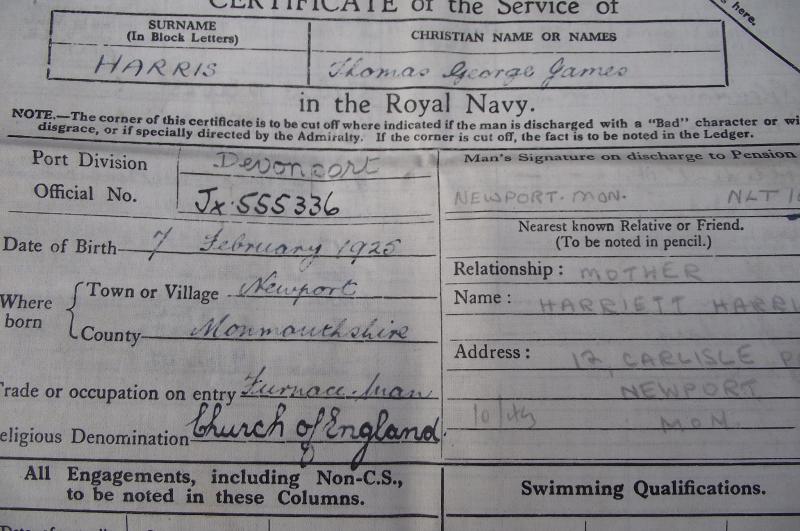 CERTIFICATE of the Service of
SURNAME
(In Block Letters)
CHRISTIAN NAME OR NAMES
HARRIS
Thomas George James
here.
in the Royal Navy.
NOTE.—The corner of this certificate is to be cut off where indicated if the man is discharged with a "Bad" character or wi
disgrace, or if specially directed by the Admiralty. If the corner is cut off, the fact is to be noted in the Ledger.
Port Division Devonport
Official No. Jx.555336
Date of Birth 7 February 1925
Where born
Town or Village Newport
County Monmouthshire
Trade or occupation on entry Furnace-man
eligious Denomination Church of England
Man's Signature on discharge to Pension
NEWPORT. MON. NLT
Nearest known Relative or Friend.
(To be noted in pencil.)
Relationship : MOTHER
Name : HARRIETT HARRI
Address : 12, CARLISLE
NEWPORT
MON
All Engagements, including Non-C.S.,
to be noted in these Columns.
Swimming Qualifications.